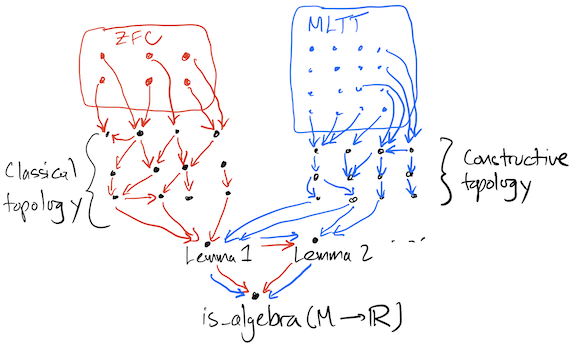 ZFC
MLTT
Classical
topology
Constructive
topology
Lemma 1
Lemma 2
...
is_algebra(M→ℝ)